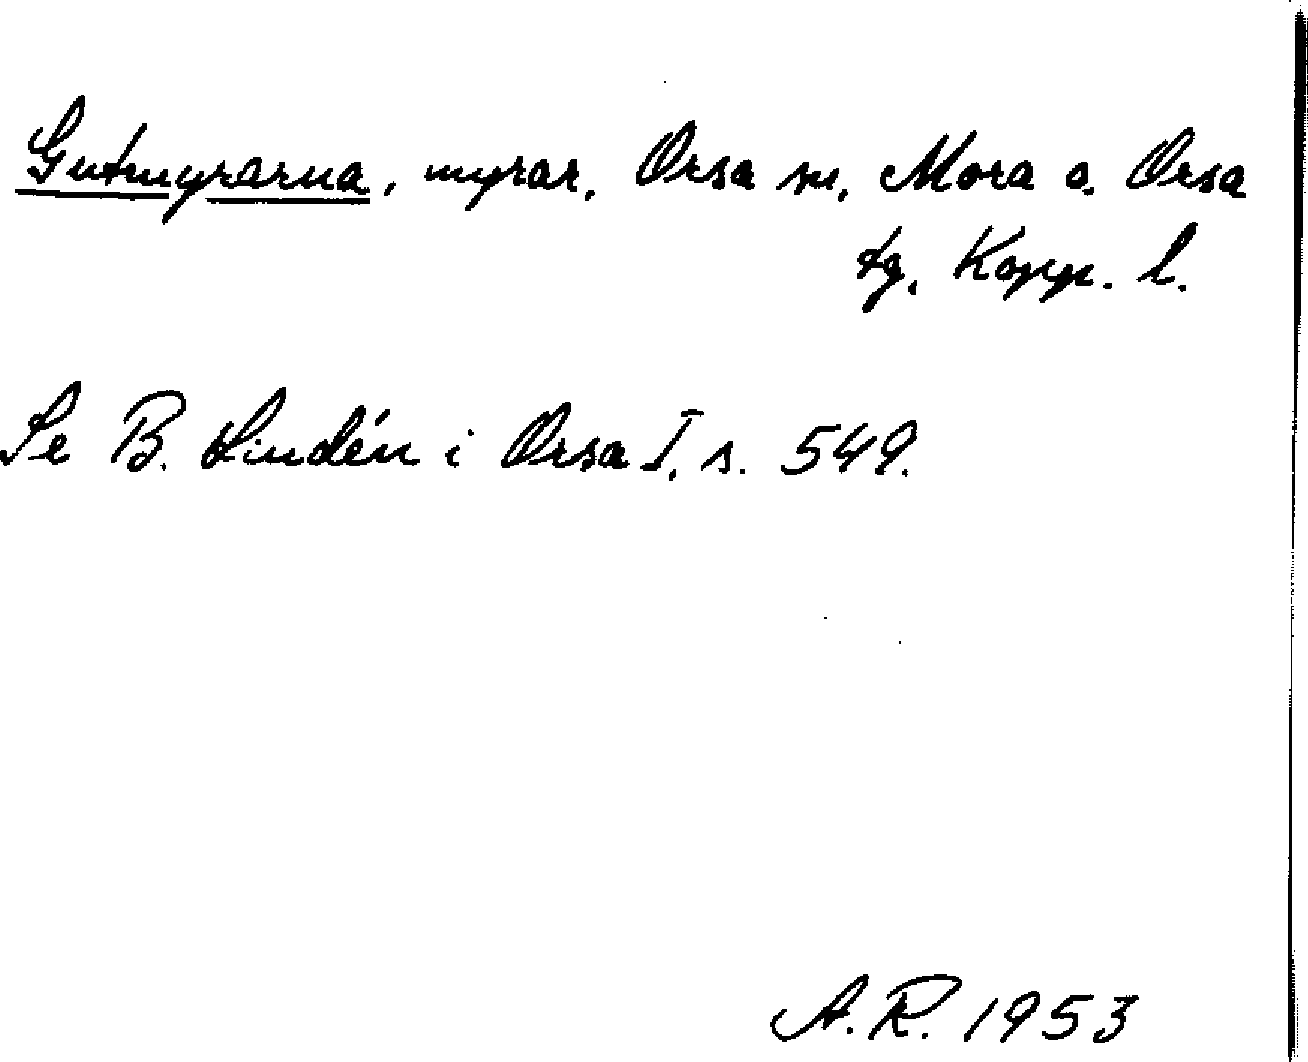 Gutmyrarna, myrar, Orsa sn, Mora o. Orsa
tg, Kopp. l.
Se B. Lindén i Orsa I, s. 549.
A.R. 1953